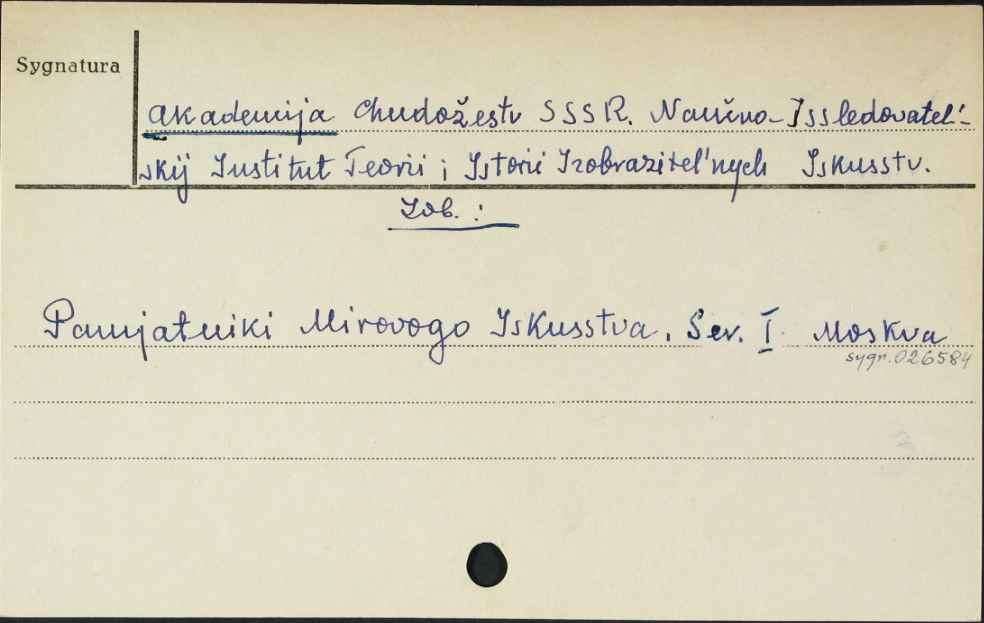 Sygnatura
Akademija Chudožestv SSSR. Naučno-Issledovatel'-
skij Institut Teorii i Istorii Izobrazitel'nych Iskusstv.
Zob.:
Pamjatniki Mirovogo Iskusstva. Ser. I Moskva
sygn. 026584